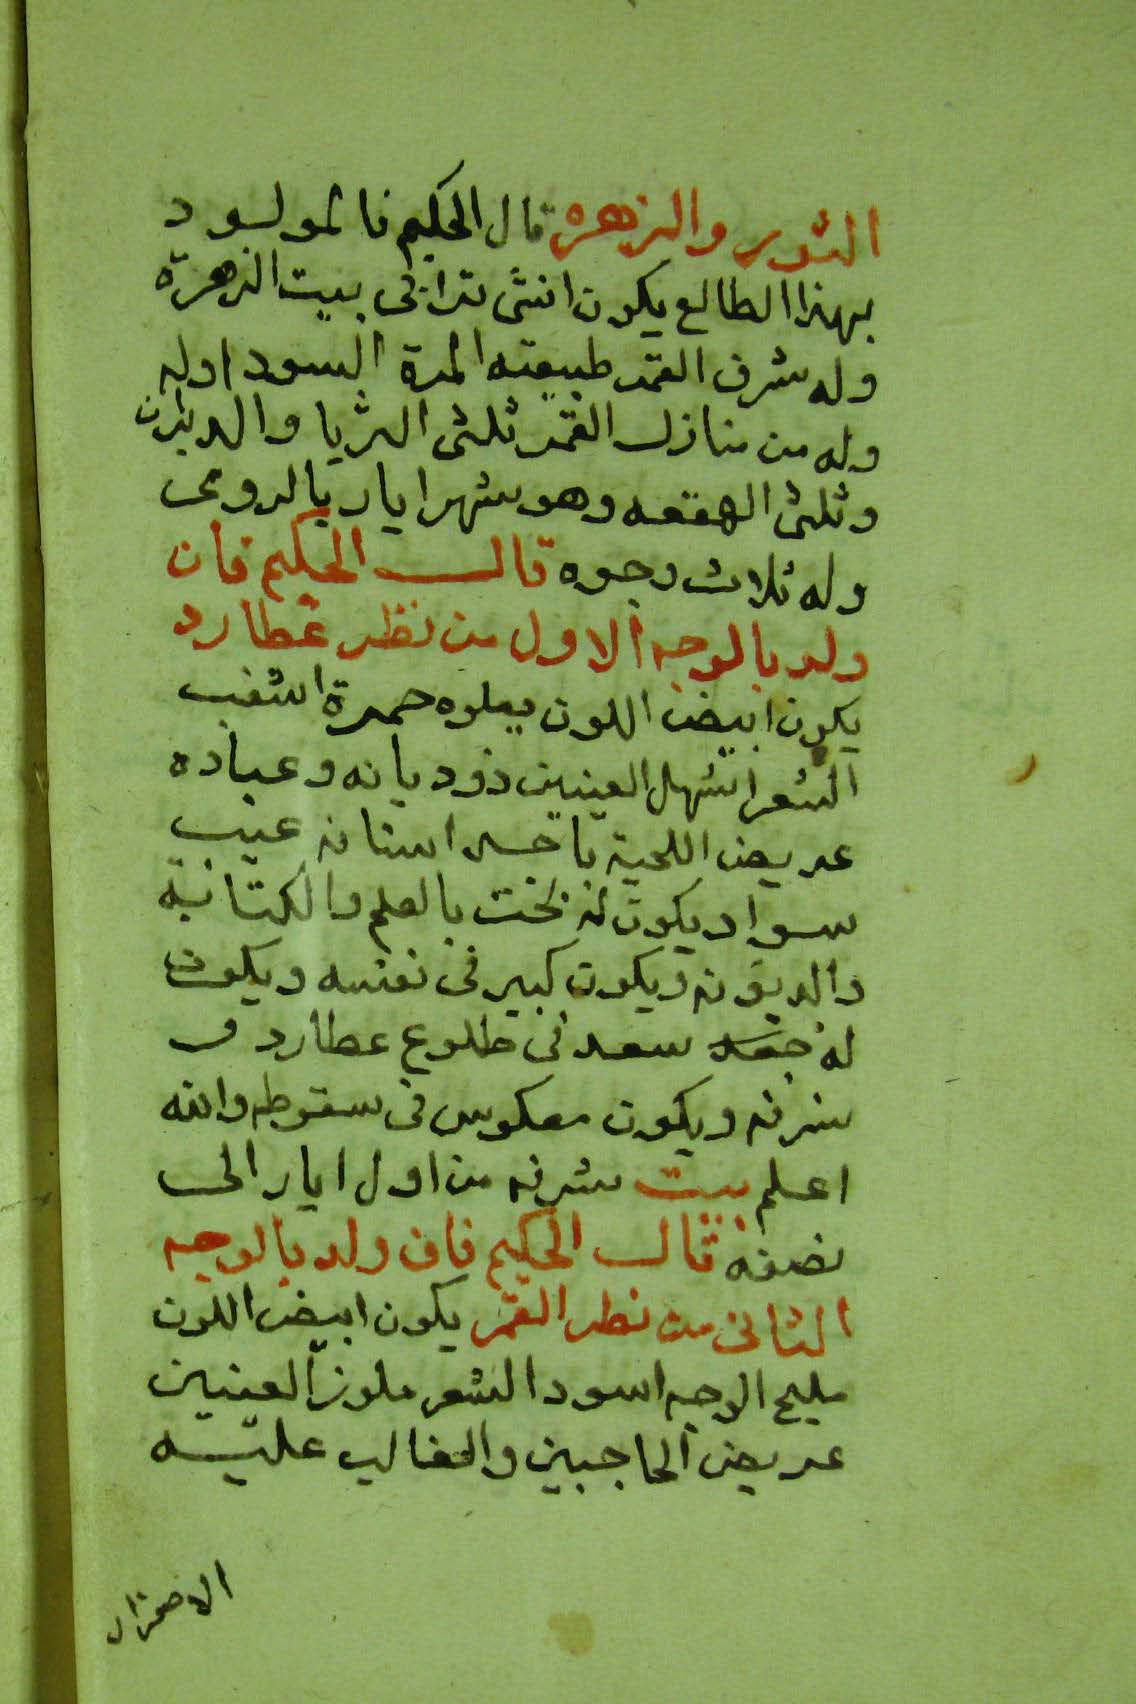 الثور والزهره قال الحكيم فالمولود
بهذا الطالع يكون انثى ترابى بيت الزهرة
وله شرف القمر طبيعته المرة السودا وله
وله من منازل القمر ثلثى الثريا والدبران
وثلثى الهقعه وهو شهر ايار بالرومى
وله ثلاث وجوه قال الحكيم فان
ولد بالوجه الاول من نظر عطارد
يكون ابيض اللون يعلوه حمرة اشقب
الشعر اشهل العينين ذو ديانه وعباده
عريض اللحية باحد اسنانه عيب
سواد ويكون له بخت بالعلم والكتابة
والديونه ويكون كبير فى نفسه ويكون
له سعد فى طلوع عطارد و
شرفه ويكون معكوس فى سقوطه والله
اعلم بيت شرفه من اول ايار الى
نصفه قال الحكيم فان ولد بالوجه
الثانى من نظر القمر يكون ابيض اللون
مليح الوجه اسود الشعر ملوز العينين
عريض الحاجبين والغالب عليه
الاصفرار